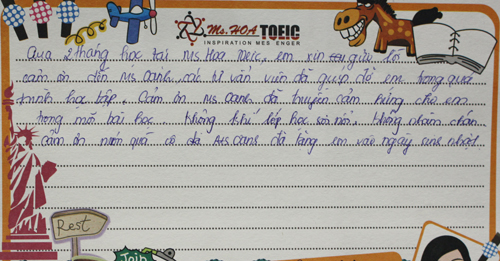 Ms. HOA TOEIC
INSPIRATION MESSENGER
Qua 2 tháng học tại Ms Hoa Toeic, em xin gửi lời
cảm ơn đến Ms Oanh, các tư vấn viên đã giúp đỡ em trong quá
trình học tập. Cảm ơn Ms Oanh đã truyền cảm hứng cho em
trong mỗi bài học. Không khí lớp học sôi nổi, không nhàm chán
cảm ơn món quà cô đã Ms Oanh đã tặng em vào ngày sinh nhật
Rest
Join